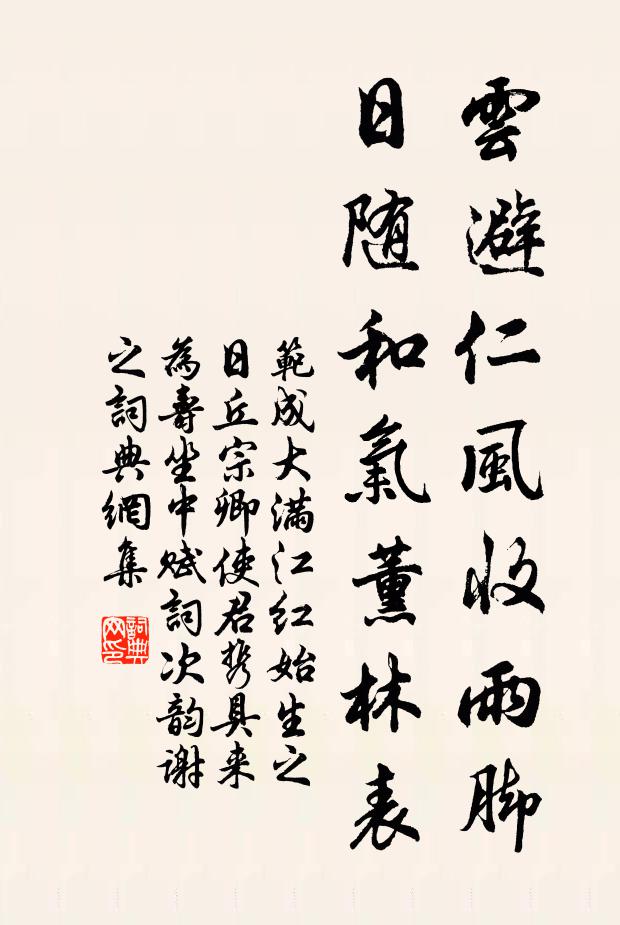 雲避仁風收雨脚
日随和氣薰林表
範成大满江红始生之
日丘宗卿使君携具来
為壽坐中赋詞次韵谢
之詞典網集
詞典
网印